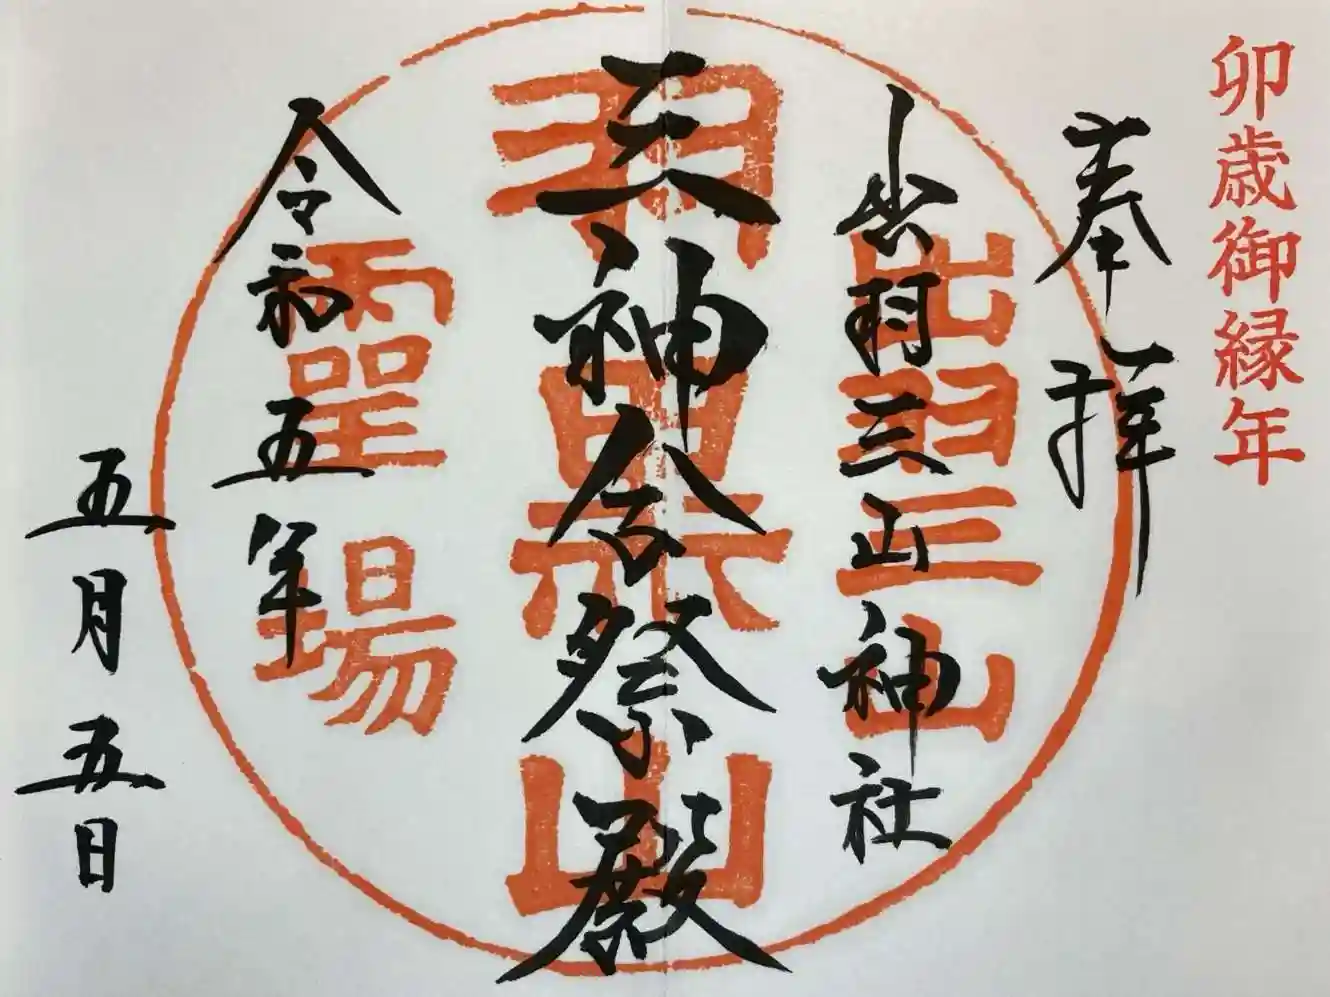 卯歳御縁年
奉拝
出羽三山神社
出羽三山
三神合祭殿
羽黒山
霊場
令和五年
五月五日